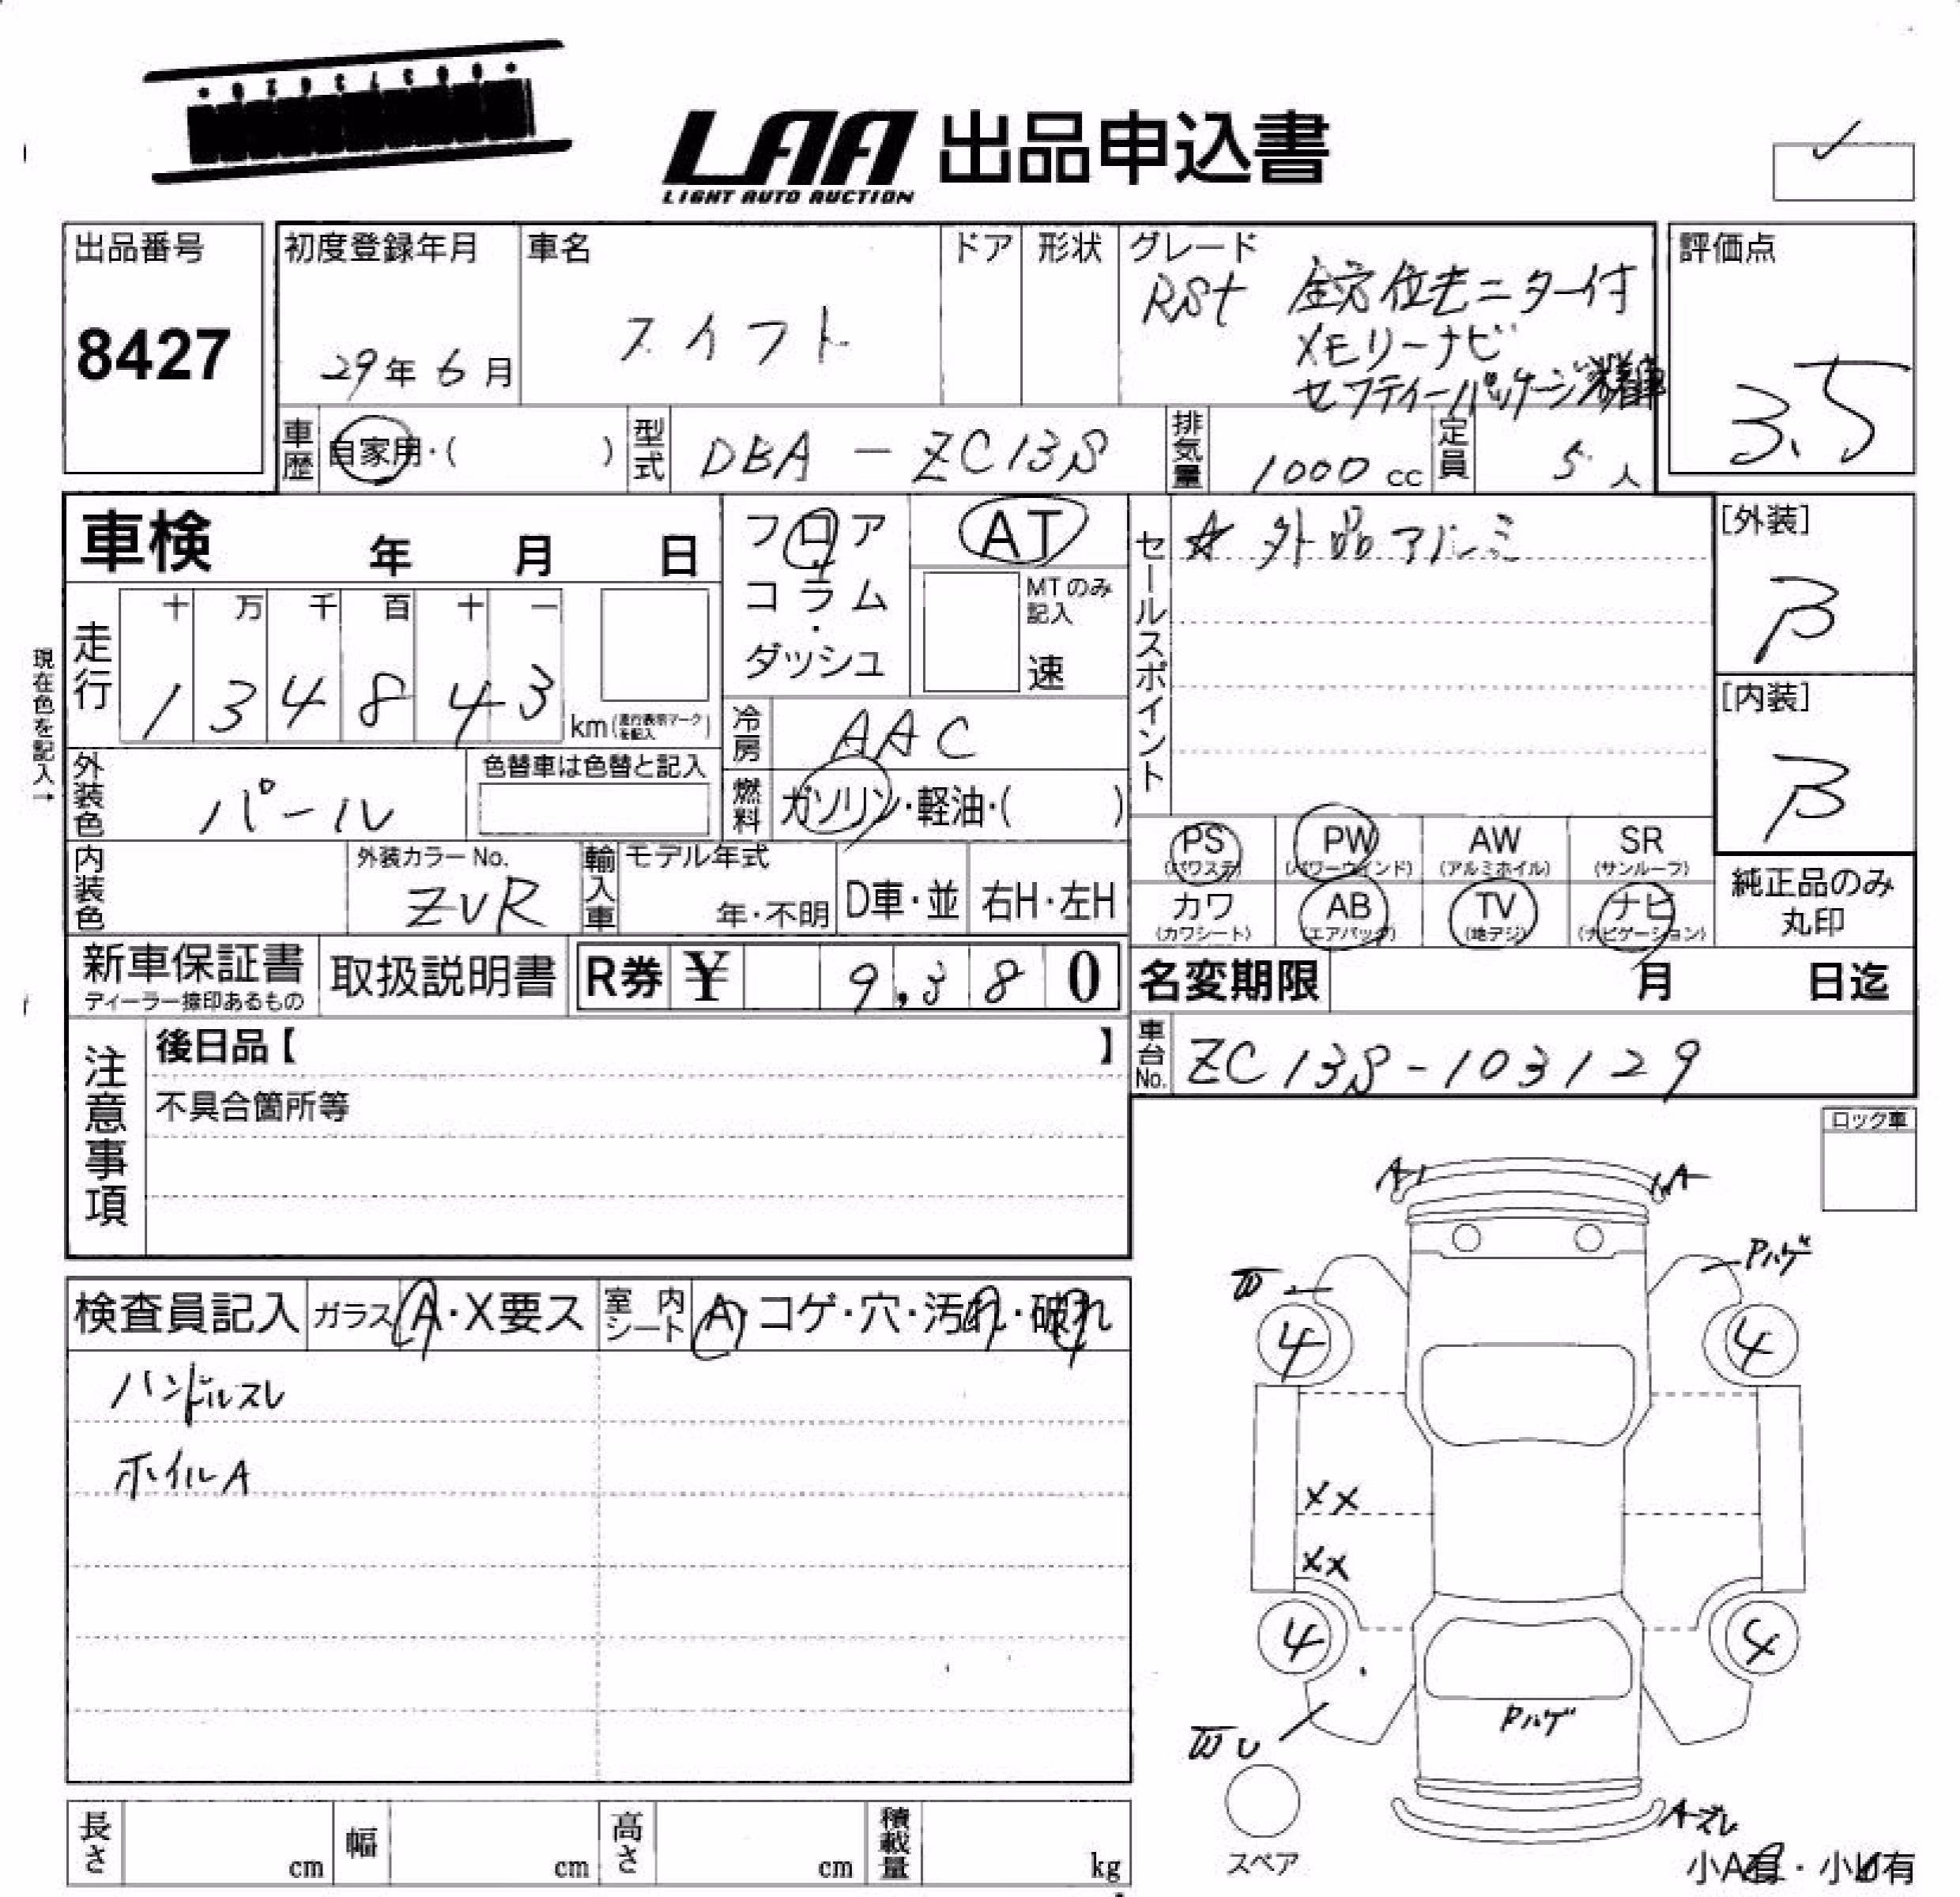 LAA 出品申込書
LIGHT AUTO AUCTION
出品番号
8427
初度登録年月
29年 6月
車名
スイフト
ドア
形状
グレード
RSt 全方位モニター付
メモリーナビ
セフティーパッケージ
評価点
3.5
車歴
自家用・( )
型式
DBA-ZC13S
排気量
1000 cc
定員
5人
車検 年 月 日
フロア
コラム
・
ダッシュ
AT
MTのみ
記入
速
セールスポイント
☆ 外品アルミ
[外装]
B
[内装]
B
現在色を記入→
走行
十 万 千 百 十 一
1 3 4 8 4 3
km(走行表示マークを記入)
冷房
AAC
外装色
パール
色替車は色替と記入
燃料
ガソリン・軽油・( )
PS
(パワステ)
PW
(パワーウィンド)
AW
(アルミホイル)
SR
(サンルーフ)
カワ
(カワシート)
AB
(エアバック)
TV
(地デジ)
ナビ
(ナビゲーション)
純正品のみ
丸印
内装色
外装カラーNo.
ZVR
輸入車
モデル年式
年・不明
D車・並
右H・左H
新車保証書
ディーラー捺印あるもの
取扱説明書
R券 ¥ 9,380
名変期限 月 日迄
車台No.
ZC13S-103129
注意事項
後日品【 】
不具合箇所等
ロック車
検査員記入
ガラス A・X要ス
室内シート A・コゲ・穴・汚れ・破れ
ハンドルスレ
ホイルA
A
A
W
Pハゲ
4
4
XX
XX
4
4
Pハゲ
WU
スペア
A ズレ
小A有・小U有
長さ cm
幅 cm
高さ cm
積載量 kg